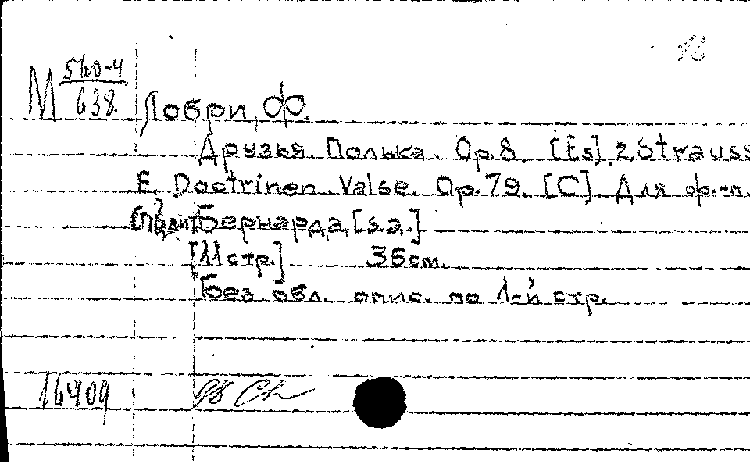 M 560-4
638
Лобри, Ф.
Друзья Полька. Op. 8. [Es]. 2 Strauss
E. Doctrinen. Valse. Op. 79. [C]. Для ф.-п.
Бернарда, [s.a.]
[11 стр.] 36 см.
Без обл. опис. по 1-й стр.
16409